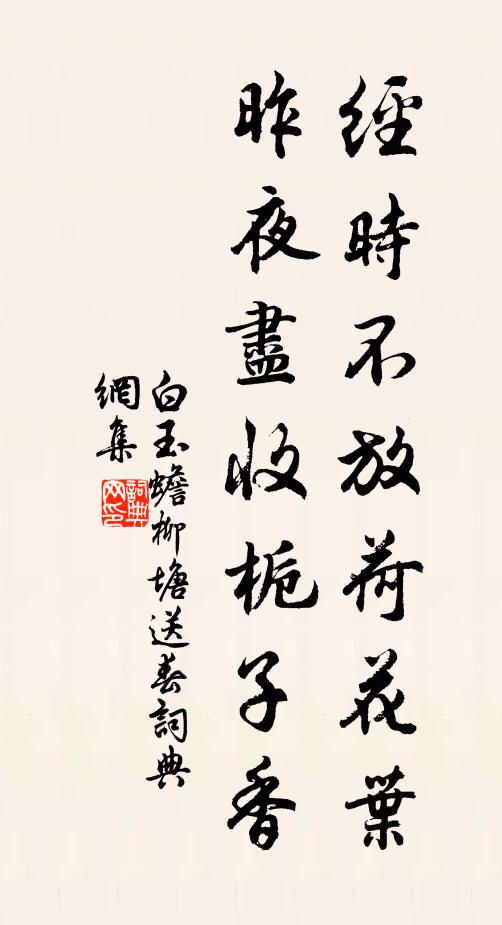 經時不放荷花葉
昨夜盡收梔子香
白玉蟾柳塘送春詞典
網集
詞典
网印